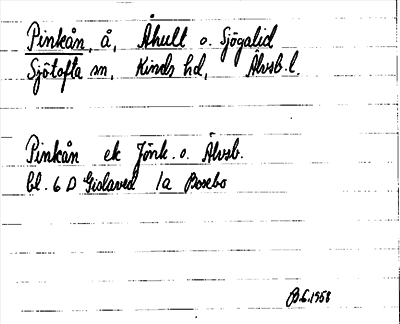 Pinkån, å, Åhult o. Sjögalid
Sjötofta sn, Kinds hd, Älvsb. l.
Pinkån ek Jönk. o. Älvsb.
bl. 6 D Gislaved 1a Bosebo
B.L. 1958